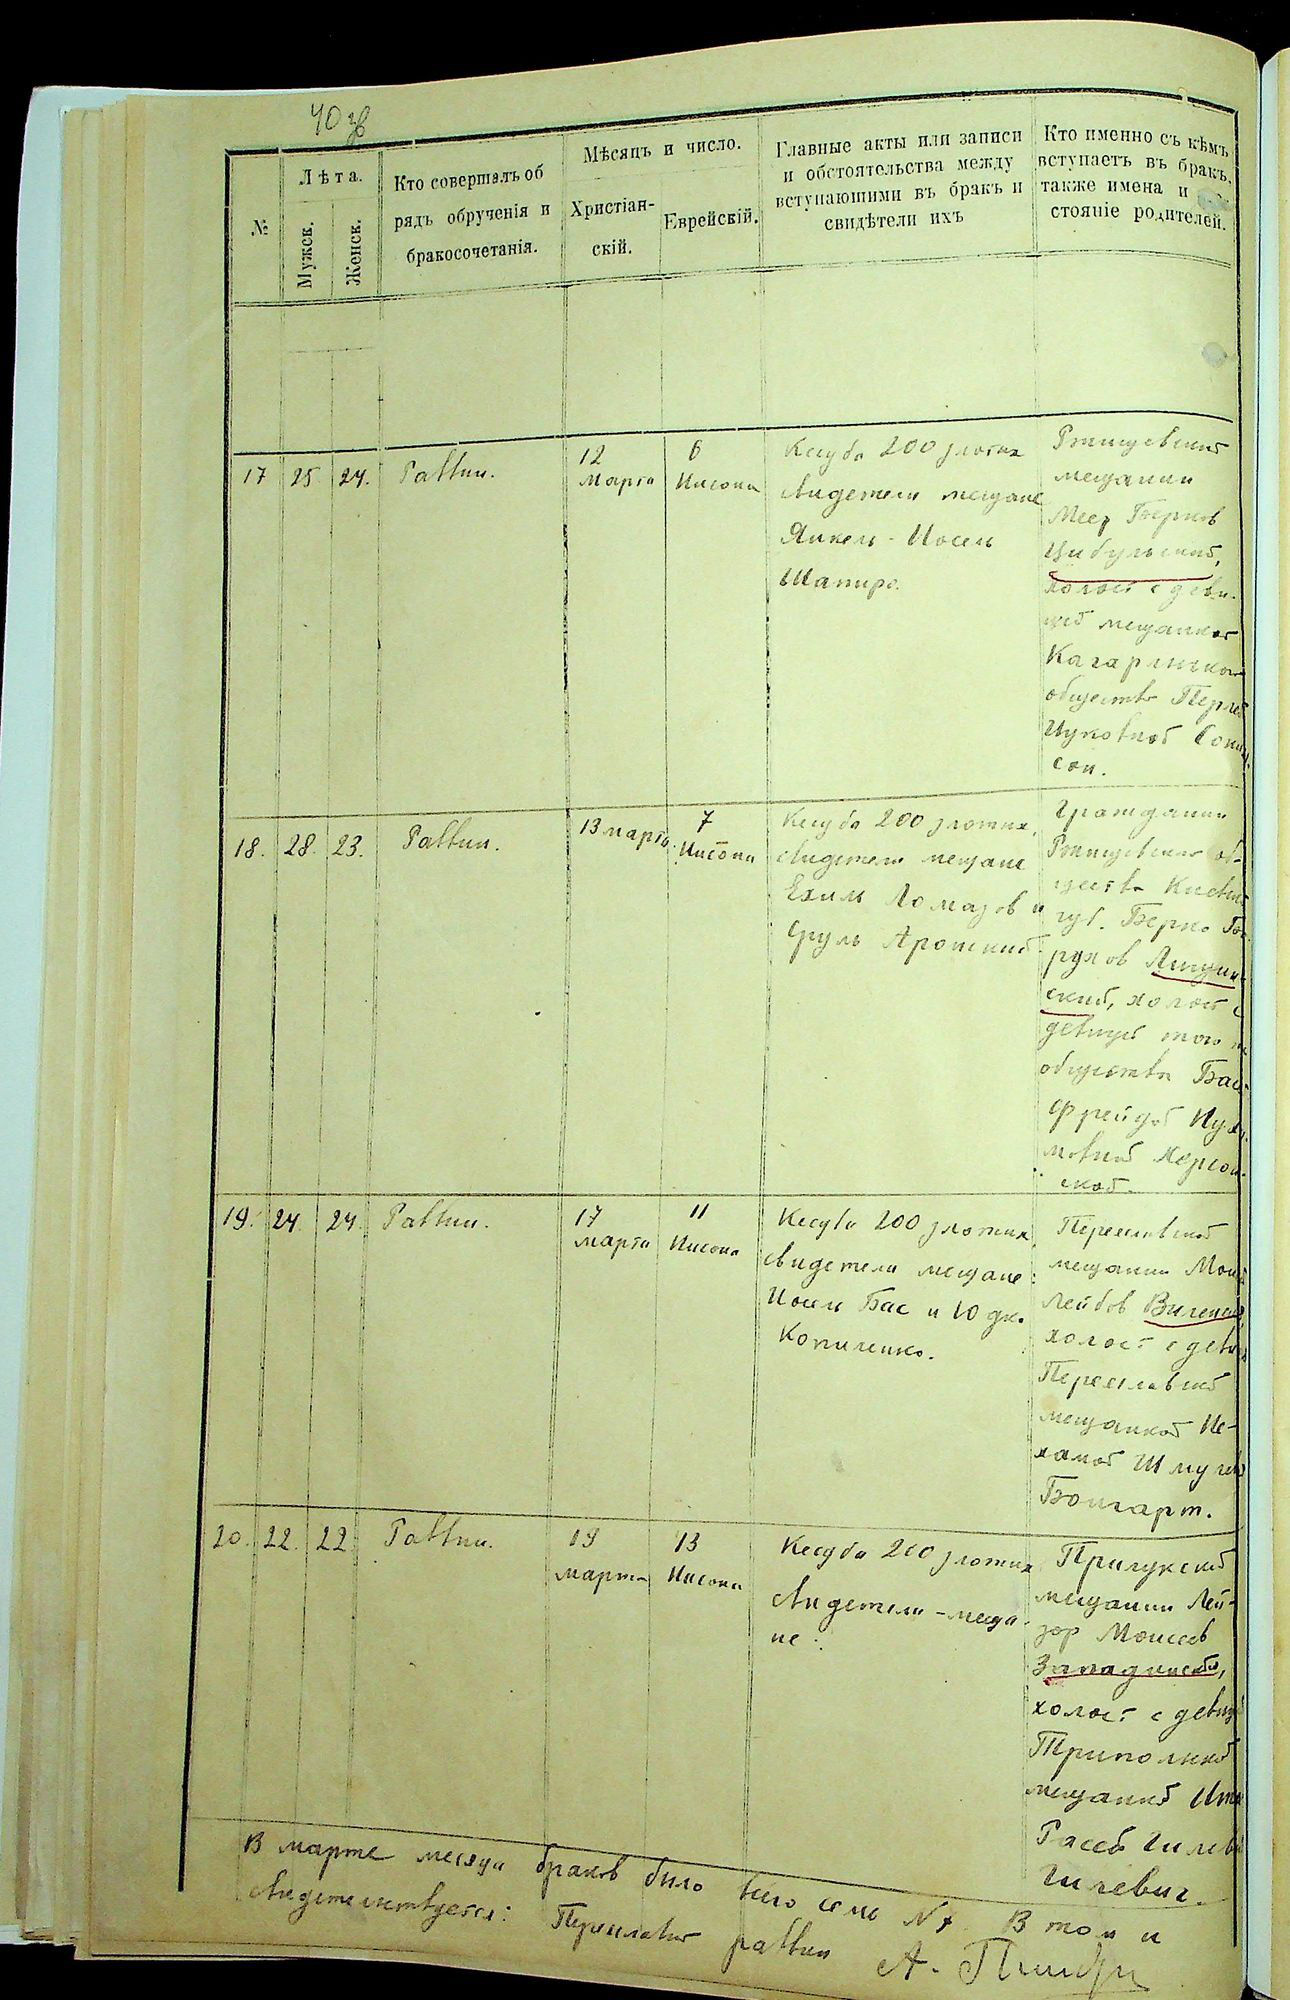 40 зв
№
Лѣта.
Мужск.
Женск.
Кто совершалъ об
рядъ обрученія и
бракосочетанія.
Мѣсяцъ и число.
Христіан-
скій.
Еврейскій.
Главные акты или записи
и обстоятельства между
вступающими въ бракъ и
свидѣтели ихъ
Кто именно съ кѣмъ
вступаетъ въ бракъ,
также имена и
стояніе родителей.
17
25
24.
Раввин.
12
марта
6
Нисона
Кесуба 200 злотих
свидетели мещане
Янкель - Иосель
Шапиро.
Ржищевский
мещанин
Меер Берков
Цибульский,
холост с деви-
цей мещанкой
Кагарлыкского
общества Перлей
Сон.
18.
28.
23.
Раввин.
13 марта.
7
Нисона
Кесуба 200 злотих,
свидетели мещане
Ехиль Ломазов и
Сруль
Гражданин
Ржищевского об-
щества Киевской
губ. Берко Бо-
рухов
ский, холост с
девицей того же
общества Бас-
фрейдой
мовной Херсон-
ской.
19.
24.
24.
Раввин.
17
марта
11
Нисона
Кесуба 200 злотих
свидетели мещане:
Иосель Бас и Юдко
Копиленко.
Переяславский
мещанин
Лейбов Виленский,
холост с девицей
Переяславской
мещанкой Не-
хамой
Бонгарт.
20.
22.
22.
Раввин.
19
марта
13
Нисона
Кесуба 200 злотих
свидетели - меща-
не:
Прилукский
мещанин Лей-
зор Моисеев
Западинский,
холост с девицей
Трипольской
мещанкой
Гилевич.
В марте месяци браков било всего семь № 7. В том и
свидетельствуется: Переяславский раввин А.